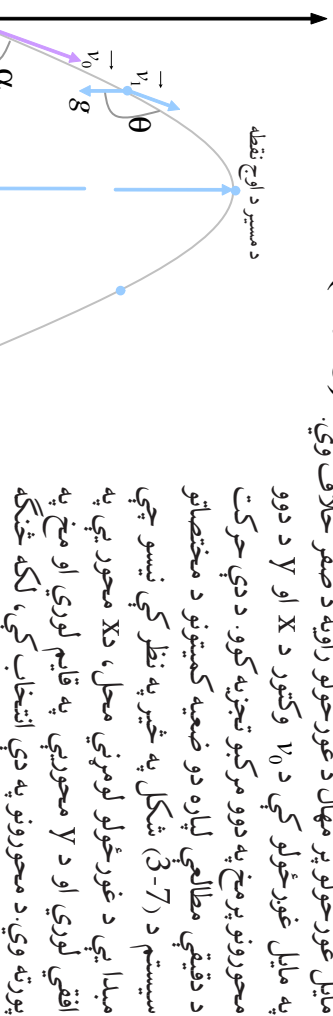 مایل غورځولو پر مهال د غورځولو زاویه د صفر خلاف وي.
په مایل غورځولو کې د v₀ وکتور د x او y د دوو
محورونو پر مخ په دوو مرکبو تجزیه کوو. د دې حرکت
د دقیقې مطالعې لپاره دو ضعیه کمیتونو د مختصاتو
سیستم د (7-3) شکل په څېر په نظر کې نیسو چې
مبدا یې د غورځولو لومړنی محل، د x محور یې په
افقي لوري او د y محور یې په قایم لوري او مخ په
پورته وي. د محورونو په دې انتخاب کې، لکه څنګه
د مسیر د اوج نقطه
v₁
θ
g
v₀
α